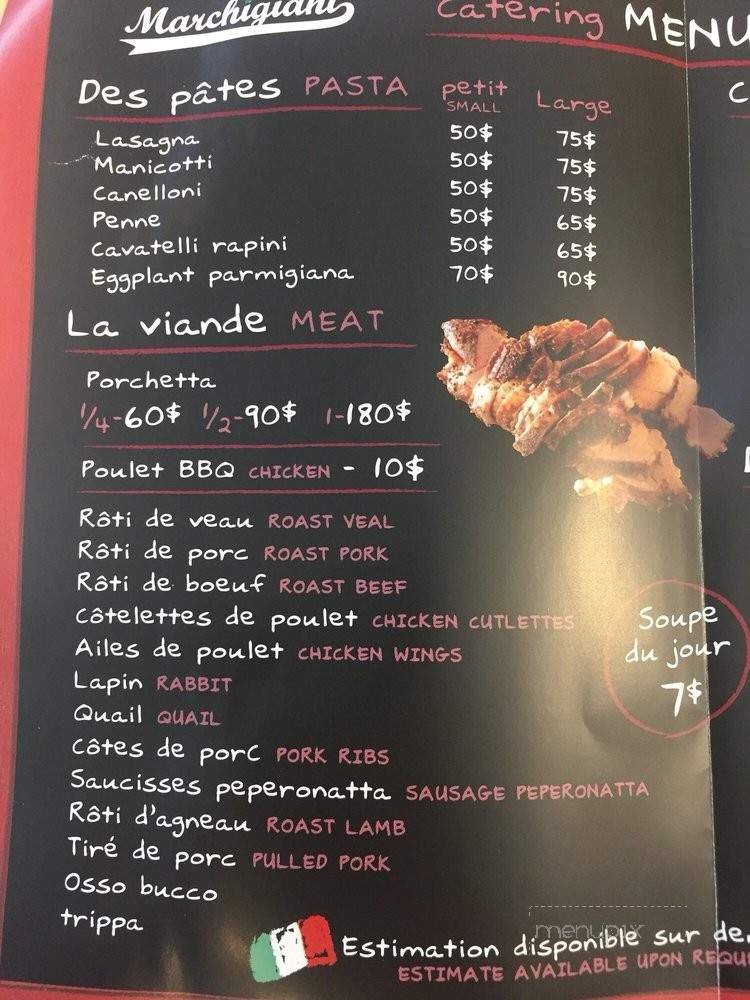 Marchigiani
Catering MENU
Des pâtes PASTA petit SMALL Large
Lasagna 50$ 75$
Manicotti 50$ 75$
Canelloni 50$ 75$
Penne 50$ 65$
Cavatelli rapini 50$ 65$
Eggplant parmigiana 70$ 90$
La viande MEAT
Porchetta
1/4-60$ 1/2-90$ 1-180$
Poulet BBQ CHICKEN - 10$
Rôti de veau ROAST VEAL
Rôti de porc ROAST PORK
Rôti de boeuf ROAST BEEF
Côtelettes de poulet CHICKEN CUTLETTES
Ailes de poulet CHICKEN WINGS
Lapin RABBIT
Quail QUAIL
Côtes de porc PORK RIBS
Saucisses peperonatta SAUSAGE PEPERONATTA
Rôti d'agneau ROAST LAMB
Tiré de porc PULLED PORK
Osso bucco
trippa
Soupe
du jour
7$
menupix
Estimation disponible sur
ESTIMATE AVAILABLE UPON